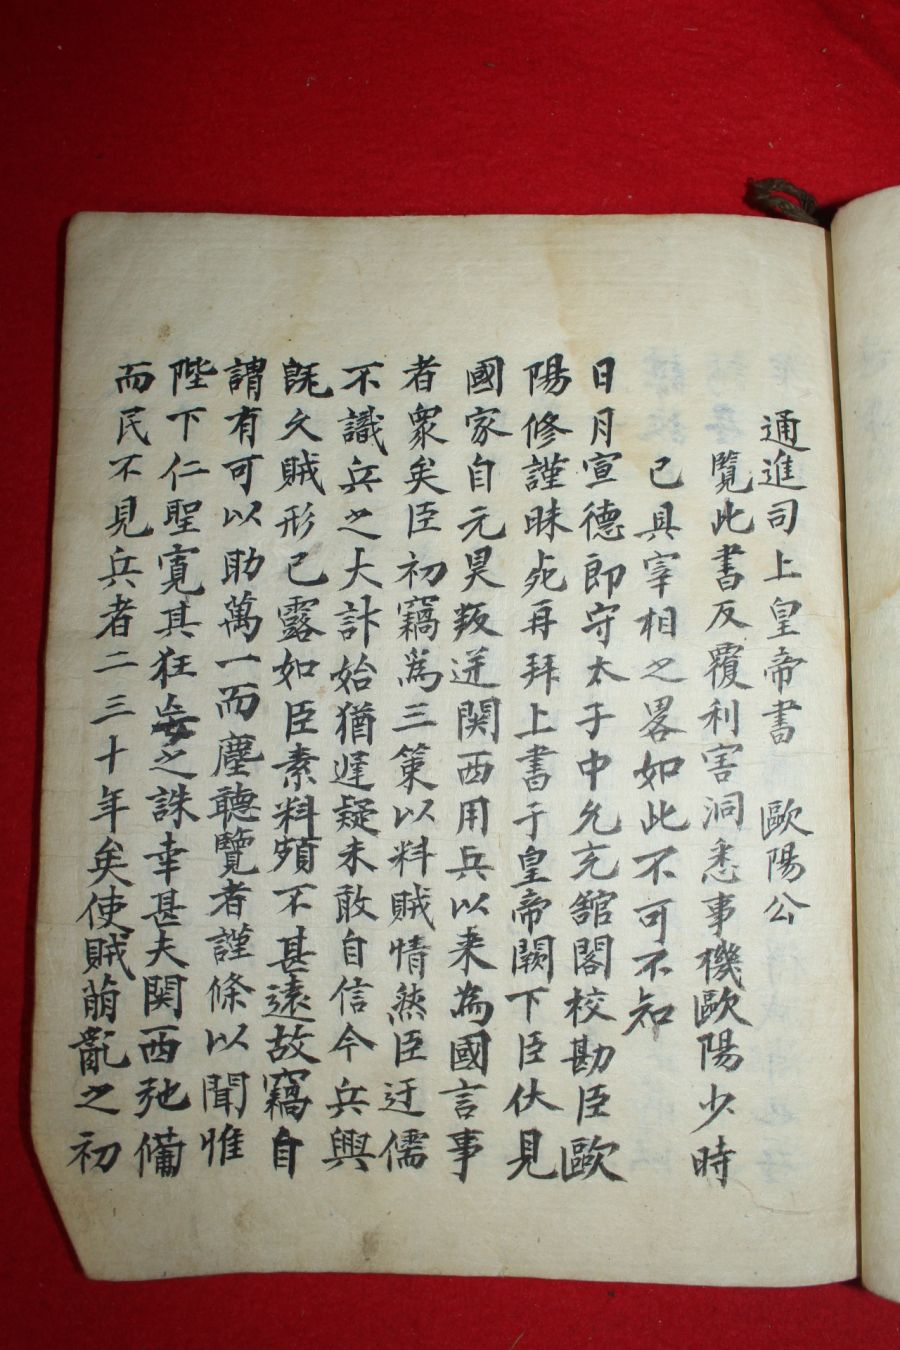 通進司上皇帝書 歐陽公
覽此書反覆利害洞悉事機歐陽少時
已具宰相之畧如此不可不知
日月宣德郎守太子中允充舘閣校勘臣歐
陽修謹昧死再拜上書于皇帝闕下臣伏見
國家自元昊叛逆関西用兵以来為國言事
者衆矣臣初竊爲三策以料賊情然臣迂儒
不識兵之大計始猶遲疑未敢自信今兵興
旣久賊形已露如臣素料頗不甚遠故竊自
謂有可以助萬一而塵聽覽者謹條以聞惟
陛下仁聖寬其狂妄之誅幸甚夫関西弛備
而民不見兵者二三十年矣使賊萌亂之初